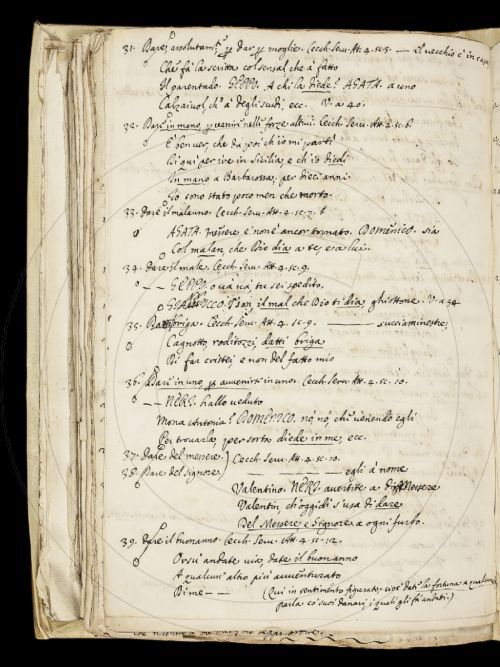 31. Dare, assolutamte, p dar p moglie. Cecch. Serv. Att. 4. sc. 3. — il vecchio è in casa
Che fà la scritta col sensal che à fatto
Il parentado. GEPPO. A chi la diede? AGATA. a uno
Calzaiuol, ch'à degli scudi, ecc. V. a 40.
32. Dare in mano, p venire nelle forze altrui. Cecch. Serv. Att. 4. sc. 6.
E' ben ver, che da poi ch'io mi parti
Di qui per ire in Sicilia, e ch'io diedi
In mano a Barbarossa, per dieci anni
Io sono stato poco men che morto.
33. Dare il malanno. Cecch. Serv. Att. 4. sc. 7.
AGATA. Messere e' non è ancor tornato. DOMENICO. sia
Col malan, che Dio dia a te, e a lui.
34. Dare il male. Cecch. Serv. Att. 4. sc. 9.
— — GEPPO. o va via tu sei spedito.
il mal che Dio ti dia ghiottone. V. a 54
35. Dar briga. Cecch. Serv. Att. 4. sc. 9. — succiaminestre,
Cagnotto, rodi tozzi, datti briga
Di far cristei, e non del fatto mio
36. Dare in uno, p avvenirsi in uno. Cecch. Serv. Att. 4. sc. 10.
— — NERI. hallo veduto
Mona Antonia? DOMENICO. nò, nò, chi venendo egli
Per trovarla, per sorta diede in me, ecc.
37. Dare del messere.) Cecch. Serv. Att. 4. sc. 10.
38. Dare del signore) — egli à nome
Valentino. NERI. avertite a dir Messere
Valentin, ch'oggidì s'usa di dare
Del Messere, e Signore a ogni furbo.
39. Dare il buonanno. Cecch. Serv. Att. 4. sc. 12.
Orsù andate via, date il buonanno
A qualcun' altro più avventurato
Di me — — (Qui in sentimento figurato, cioè dati la fortuna a qualcuno
parla co' suoi danari i quali gli fà andati.)